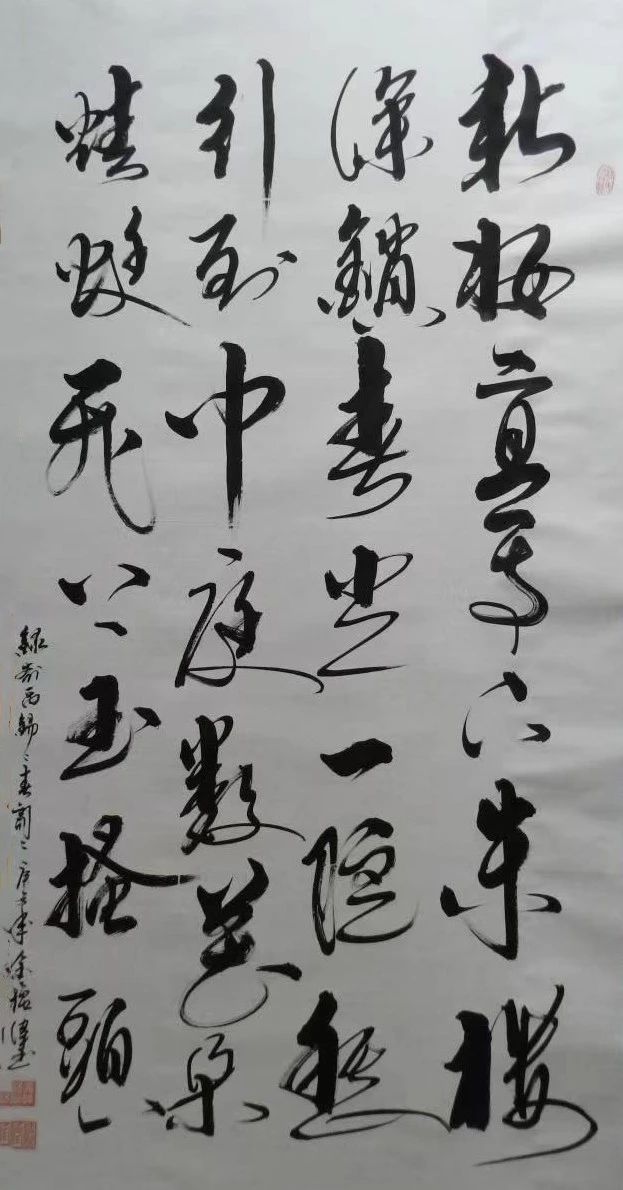 新粧宜面下朱樓
深鎖春光一院愁
行到中庭數花朵
蜻蜓飛上玉搔頭
錄劉禹錫春詞